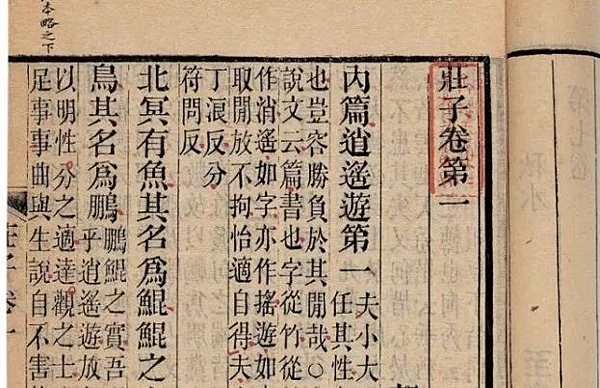 第七卷
秋水
至
莊子卷第一
內篇逍遙遊第一
夫小大
任其性
也豈容勝負於其閒哉○
說文云篇書也字從竹從
作消遙如字亦作搖遊如
取閒放不拘怡適自得夫
丁浪反分
符問反
北冥有魚其名爲鯤鯤之
鳥其名爲鵬
鵬鯤之實吾
乎逍遙遊放
以明性分之適達觀之士
足事事曲與生說自不害
本略之下
莊子卷一